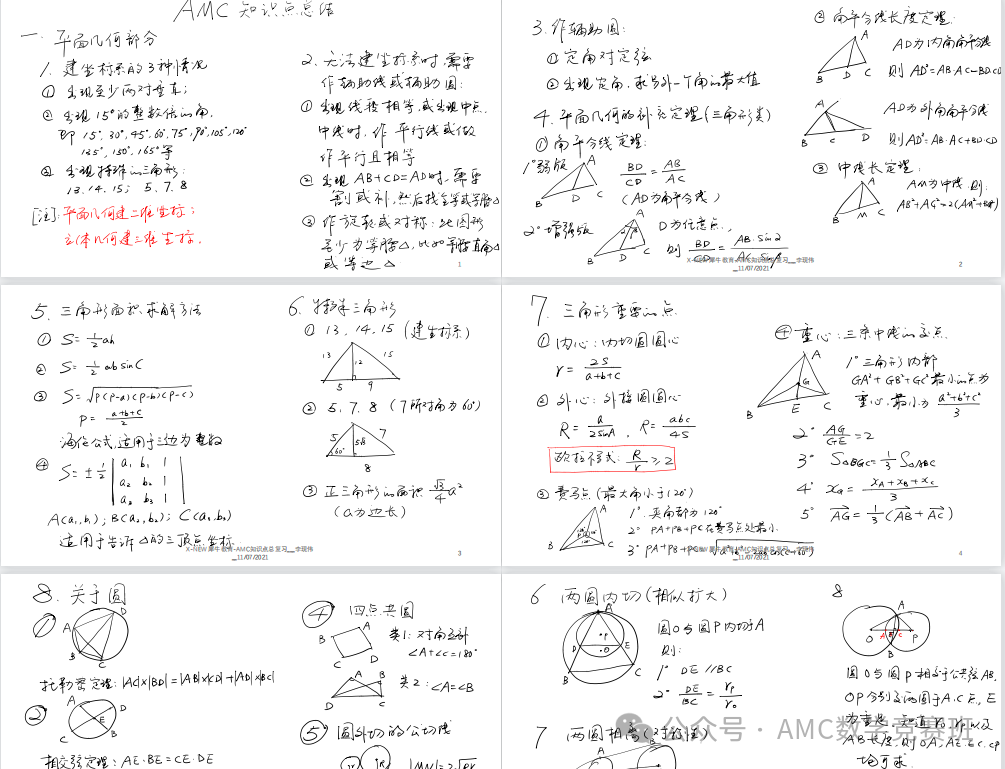 AMC 知识点总结
一. 平面几何部分
1. 建坐标系的3种情况
① 出现至少两对垂直;
② 出现15°的整数倍的角,
即 15°, 30°, 45°, 60°, 75°, 90°, 105°, 120°
135°, 150°, 165° 等
③ 出现特殊的三角形:
13. 14. 15; 5. 7. 8
[注]: 平面几何建二维坐标;
立体几何建三维坐标.
2. 无法建坐标时, 需要
作辅助线或辅助圆:
① 出现线段相等, 或出现中点.
中线时, 作平行线或做
作平行且相等
② 出现 AB+CD=AD 时, 需要
割或补, 然后找全等或等腰△
③ 作旋转或对称: 此图形
至少为等腰△, 比如等腰直角△
或等边△
1
3. 作辅助圆:
① 定角对定弦
② 出现定角, 求另外一个角的最大值
4. 平面几何的补充定理(三角形类)
① 角平分线定理:
1° 弱版
A
B
D
C
BD/CD = AB/AC
(AD为角平分线)
2° 增强版
A
B
D
C
D为任意点,
则 BD/CD = AB·sin2
② 角平分线长度定理:
A
B
D
C
AD为内角角平分线
则 AD²=AB·AC-BD·CD
A
B
C
D
AD为外角角平分线
则AD²=AB·AC+BD·CD
③ 中线长定理:
A
B
M
C
AM为中线 则:
X-NEW 犀牛教育-AMC知识点总复习__李现伟
_11/07/2021
2
5. 三角形面积求解方法
① S=½ah
② S=½absinC
③ S=√P(P-a)(P-b)(P-c)
P= (a+b+c)/2
海伦公式, 适用于三边为整数
④ S=±½ | a₁ b₁ 1 |
a₂ b₂ 1
a₃ b₃ 1
适用于告诉△的三顶点坐标
6. 特殊三角形
① 13. 14. 15 (建坐标系)
13
12
15
5
9
② 5. 7. 8 (7所对角为60°)
5
7
60°
8
③ 正三角形的面积 √3/4 a²
(a为边长)
X-NEW 犀牛教育-AMC知识点总复习__李现伟
_11/07/2021
3
7. 三角形重要的点
① 内心: 内切圆圆心
r= 2S/(a+b+c)
② 外心: 外接圆圆心
R= a/2sinA , R= abc/4S
欧拉不等式: R/r ≥2
③ 费马点 (最大角小于120°)
A
B
C
1° 夹角都为120°
2° PA+PB+PC在费马点处最小
3° PA+PB+PC=
④ 重心: 三条中线的交点
A
G
B
E
C
1° 三角形内部
GA²+GB²+GC²最小的点为
重心, 最小为 (a²+b²+c²)/3
2° AG/GE=2
3° S△BGC=⅓S△ABC
4° x_G = (x_A+x_B+x_C)/3
5° AG=⅓(AB+AC)
X-NEW 犀牛教育-AMC知识点总复习__李现伟
_11/07/2021
4
8. 关于圆
①
A
D
B
C
托勒密定理: |AC|×|BD|=|AB|×|CD|+|AD|×|BC|
②
A
D
E
C
B
相交弦定理: AE·BE=CE·DE
④ 四点共圆
B
A
C
D
类1: 对角互补
∠A+∠C=180°
A
B
D
C
类2: ∠A=∠B
⑤ 圆外切的公切线
6 两圆内切(相似扩大)
A
P
D
O
E
B
C
圆O与圆P内切于A
则:
1° DE//BC
2° DE/BC = r_P/r_O
7 两圆相离(对称性)
8
A
O
A
B
C
P
圆O与圆P相交于公共弦AB.
OP分别交两圆于A.C点, E
均可求.
公众号 · AMC数学竞赛班